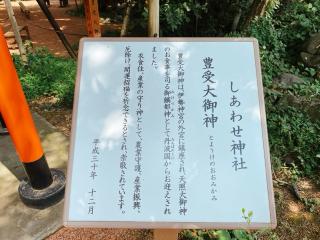 しあわせ神社
豊受大御神
とようけのおおみかみ
豊受大御神は、伊勢神宮の外宮に鎮座され、天照大御神
のお食事を司る御饌都神として丹波国からお迎えされ
ました。
衣食住、産業の守り神として、農業守護、産業振興、
厄除け、開運招福を祈念できるとされ、崇敬されています。
平成三十年 十二月